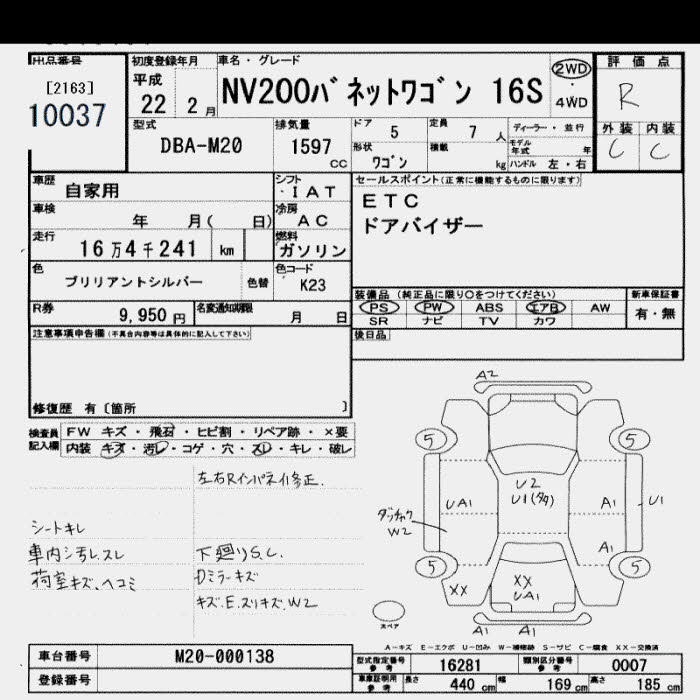 出品番号
[2163]
10037
初度登録年月
平成
22 2月
車名・グレード
NV200バネットワゴン 16S
2WD
・
4WD
評価点
R
外装 内装
C C
型式
DBA-M20
排気量
1597
CC
ドア
5
定員
7 人
形状
ワゴン
積載
kg
ディーラー・並行
モデル年式 年
ハンドル 左・右
車歴
自家用
シフト
・IAT
車検
年 月( 日)
冷房
AC
走行
16万4千241 km
燃料
ガソリン
色
ブリリアントシルバー
色替
色コード
K23
R券
9,950円
名変通知期限
月 日
セールスポイント(正常に機能するものに限ります)
ETC
ドアバイザー
装備品 (純正品に限り○をつけてください)
PS PW ABS エアB AW
SR ナビ TV カワ
新車保証書
有・無
後日品
注意事項申告欄(不具合内容等は具体的に記入して下さい)
修復歴 有〔箇所 〕
検査員記入欄
FW キズ・飛石・ヒビ割・リペア跡・×要
内装 キズ・汚レ・コゲ・穴・スレ・キレ・破レ
左右Rインパネイ修正.
シートキレ
車内シ汚レスレ
荷室キズ、ヘコミ
下廻りS.C.
Dミラーキズ
キズ.E.スリキズ.W2
A2
5 5
U2
U1(多)
UA1
A1
U1
ダッチャク
W2
A1
5 5
XX
XX
UA1
スペア
A1 A1
A-キズ E-エクボ U-凹み W-補修跡 S-サビ C-腐食 XX-交換済
車台番号
M20-000138
登録番号
型式指定番号
参考
16281
類別区分番号
参考
0007
車庫証明用
参考
長さ 440 cm 幅 169 cm 高さ 185 cm